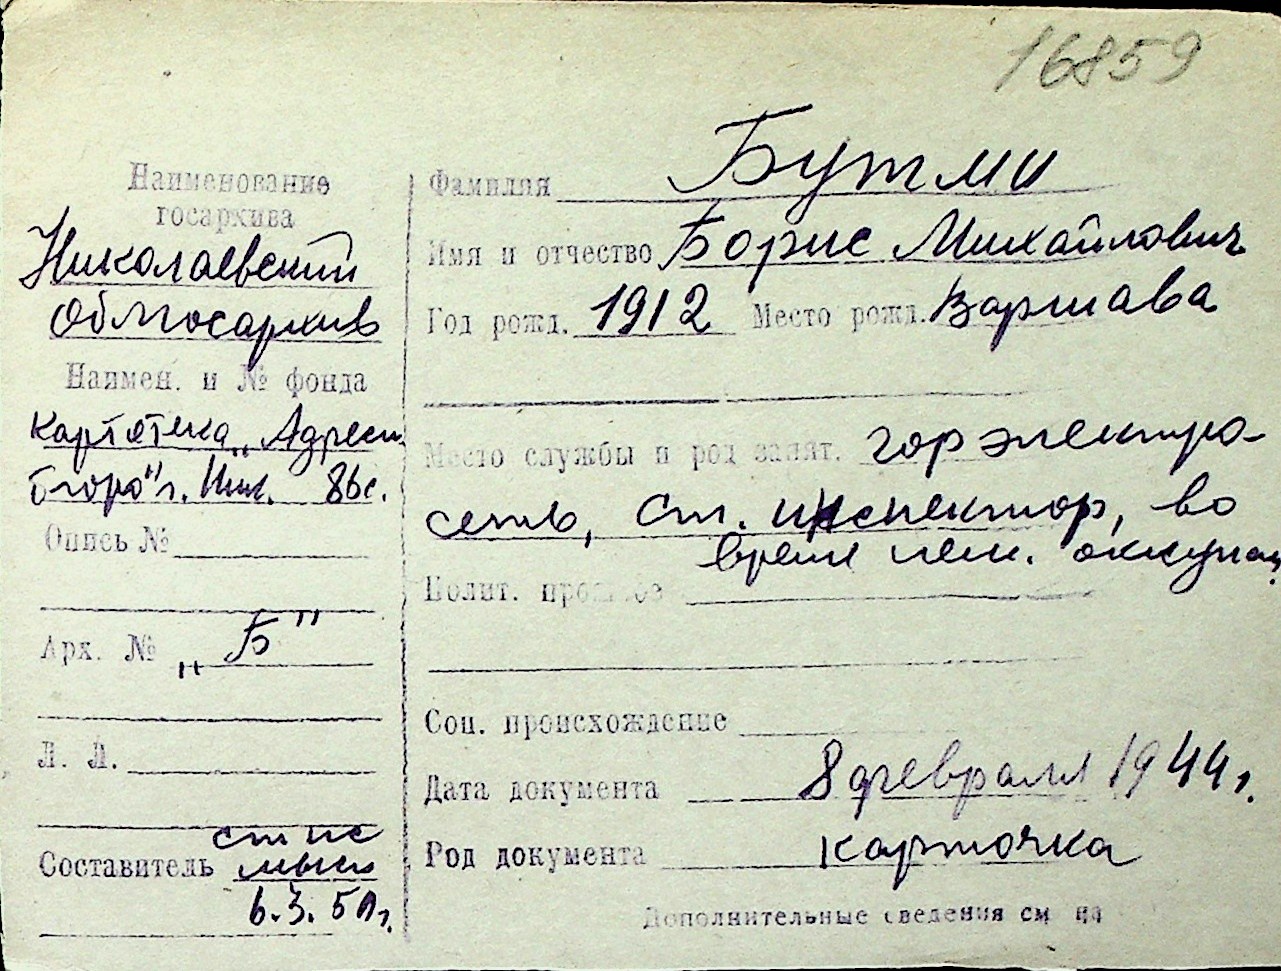 16859
Наименование
госархива
Николаевский
облгосархив
Наимен. и № фонда
картотека „Адресн.
бюро" г. Ник. 86с.
Опись №
Арх. № „Б"
Л. Л.
Составитель
6.3.50г.
Фамилия Бутми
Имя и отчество Борис Михайлович
Год рожд. 1912 Место рожд. Варшава
Место службы и род занят. горэлектро-
сеть, ст. инспектор, во
время нем. оккупац.
Полит. прошлое
Соц. происхождение
Дата документа 8 февраля 1944г.
Род документа карточка
Дополнительные сведения см на